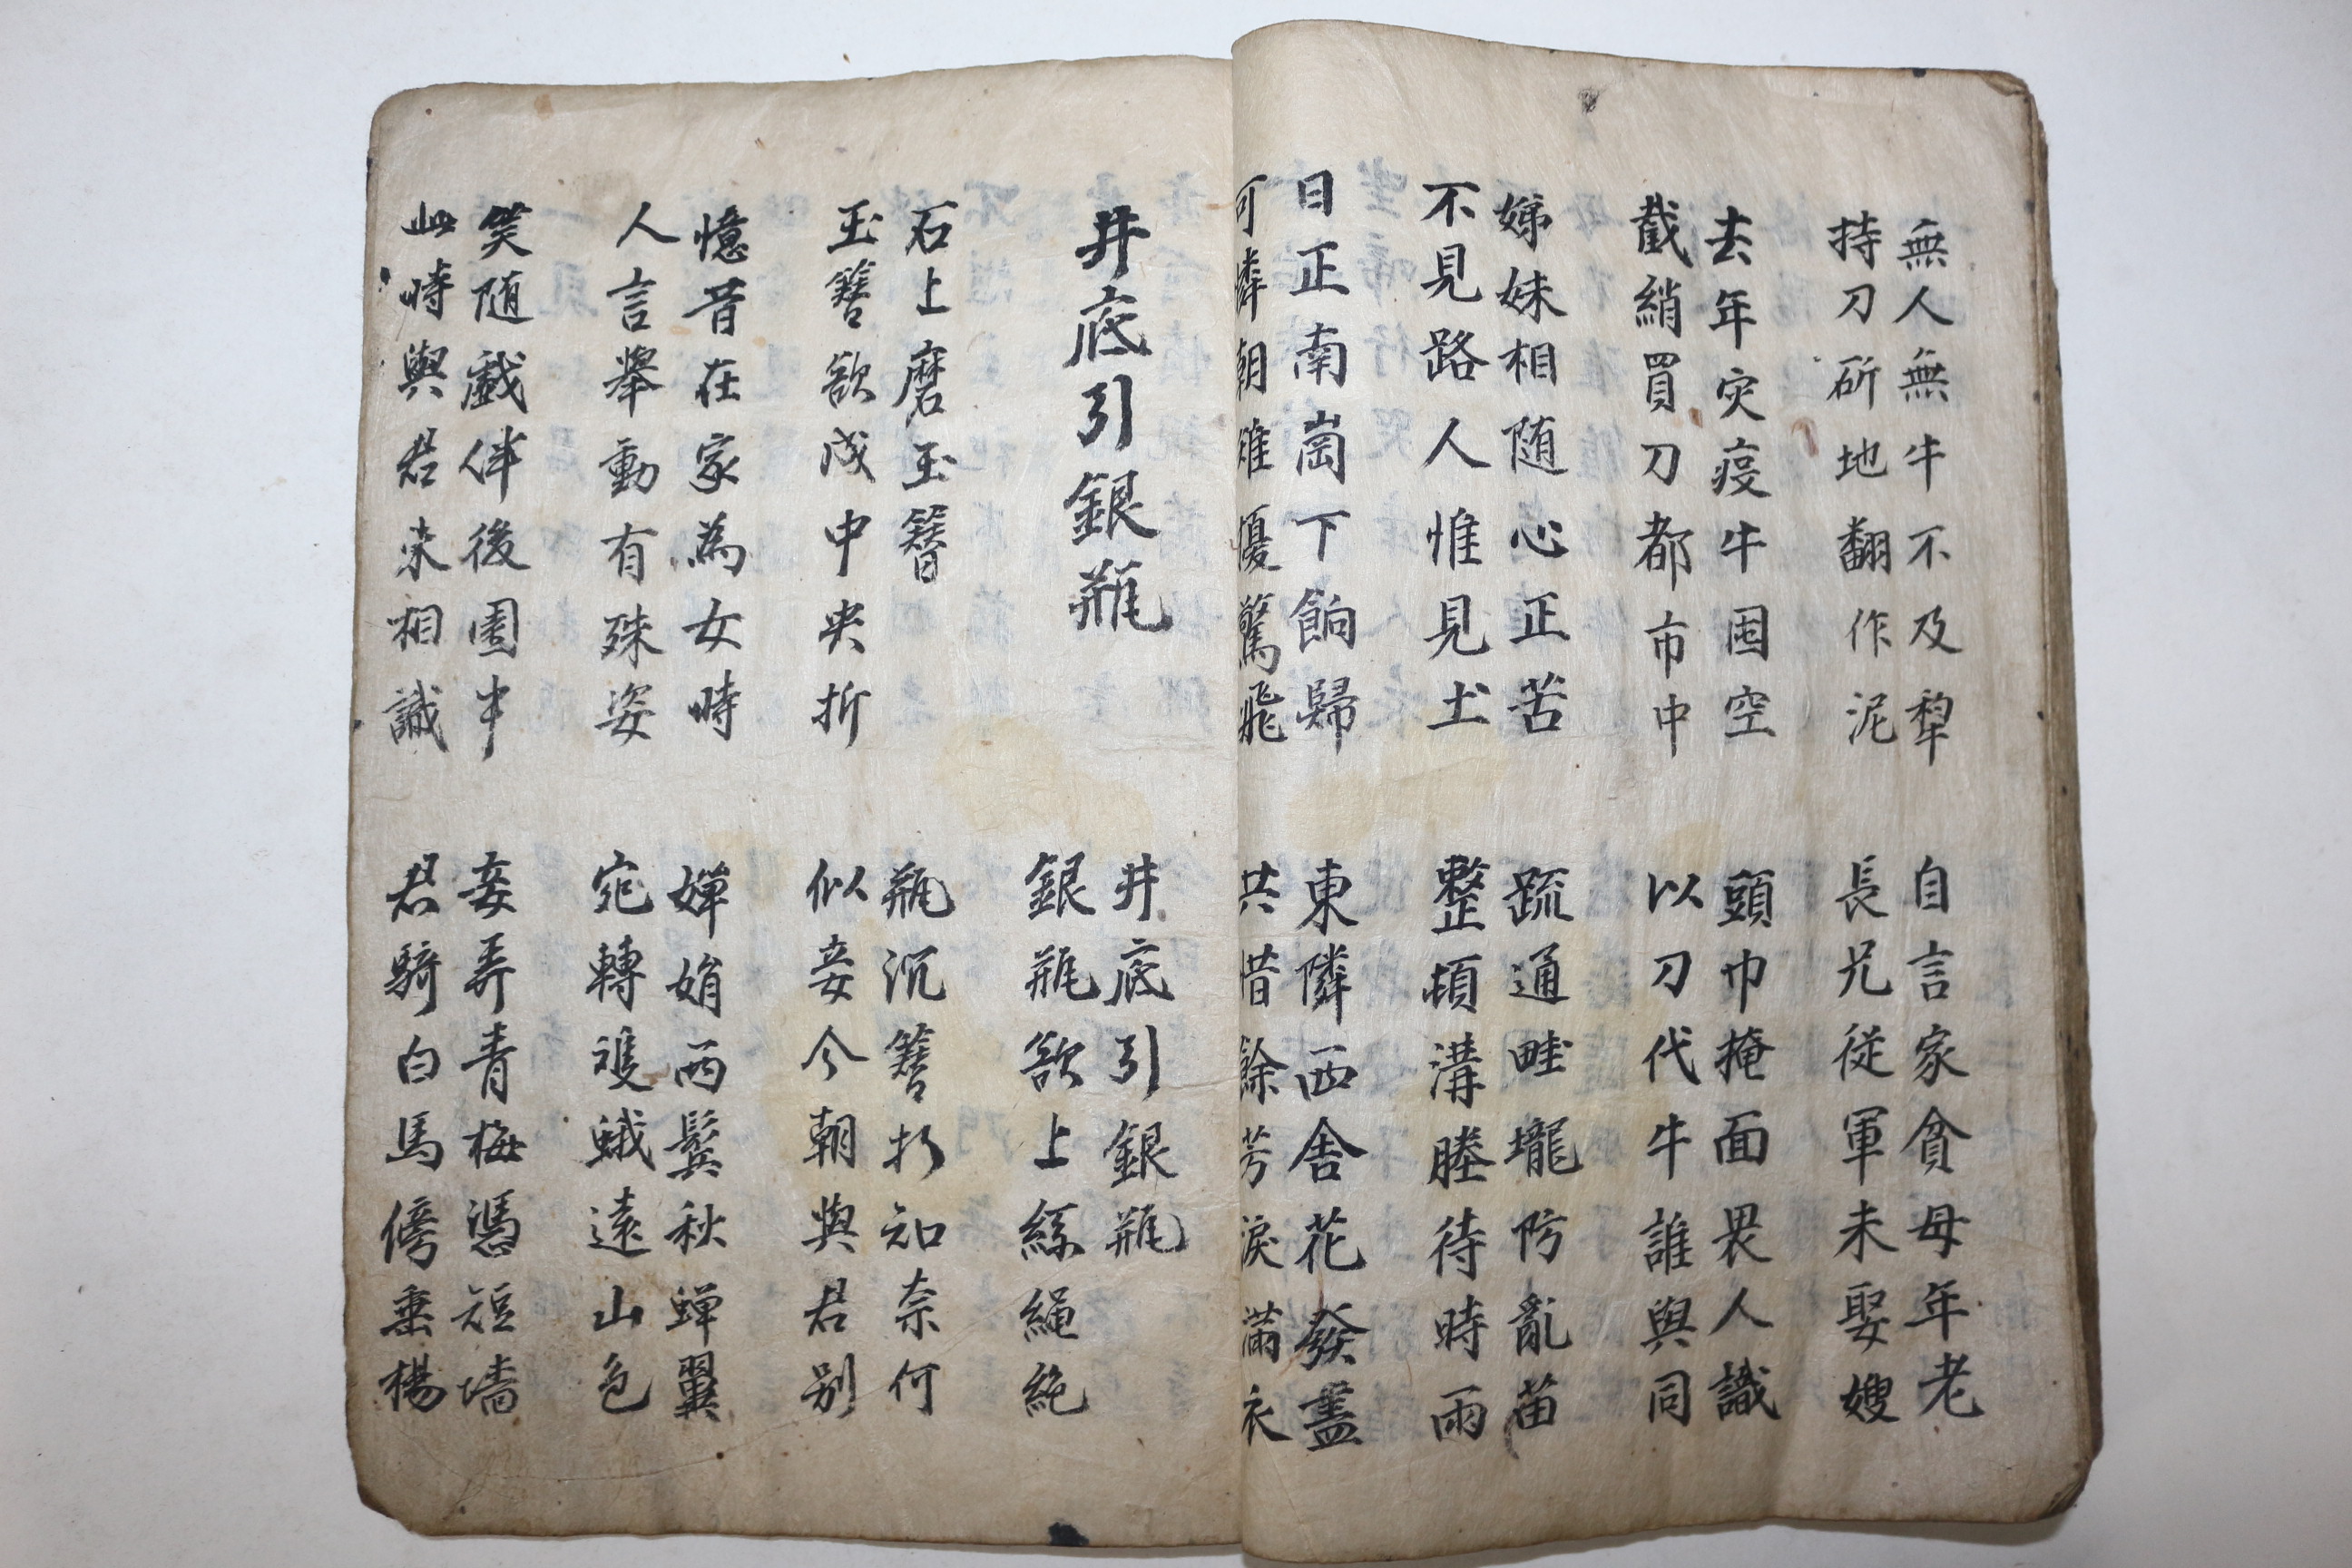 無人無牛不及犂
持刀斫地翻作泥
自言家貧母年老
長兄従軍未娶嫂
去年灾疫牛囤空
截綃買刀都市中
頭巾掩面畏人識
以刀代牛誰與同
姊妹相随心正苦
不見路人惟見土
疏通畦壠防亂苗
整頓溝塍待時雨
日正南崗下餉歸
可憐朝雉懮驚飛
東隣西舍花發盡
共惜餘芳淚滿衣
井底引銀瓶
井底引銀瓶
銀瓶欲上絲繩絶
石上磨玉簪
玉簪欲成中央折
瓶沉簪折知奈何
似妾今朝與君别
憶昔在家為女時
人言擧動有殊姿
嬋娟兩鬢秋蟬翼
宛轉雙蛾遠山色
笑随戲伴後園中
此時與君未相識
妾弄青梅憑短墻
君騎白馬傍垂楊